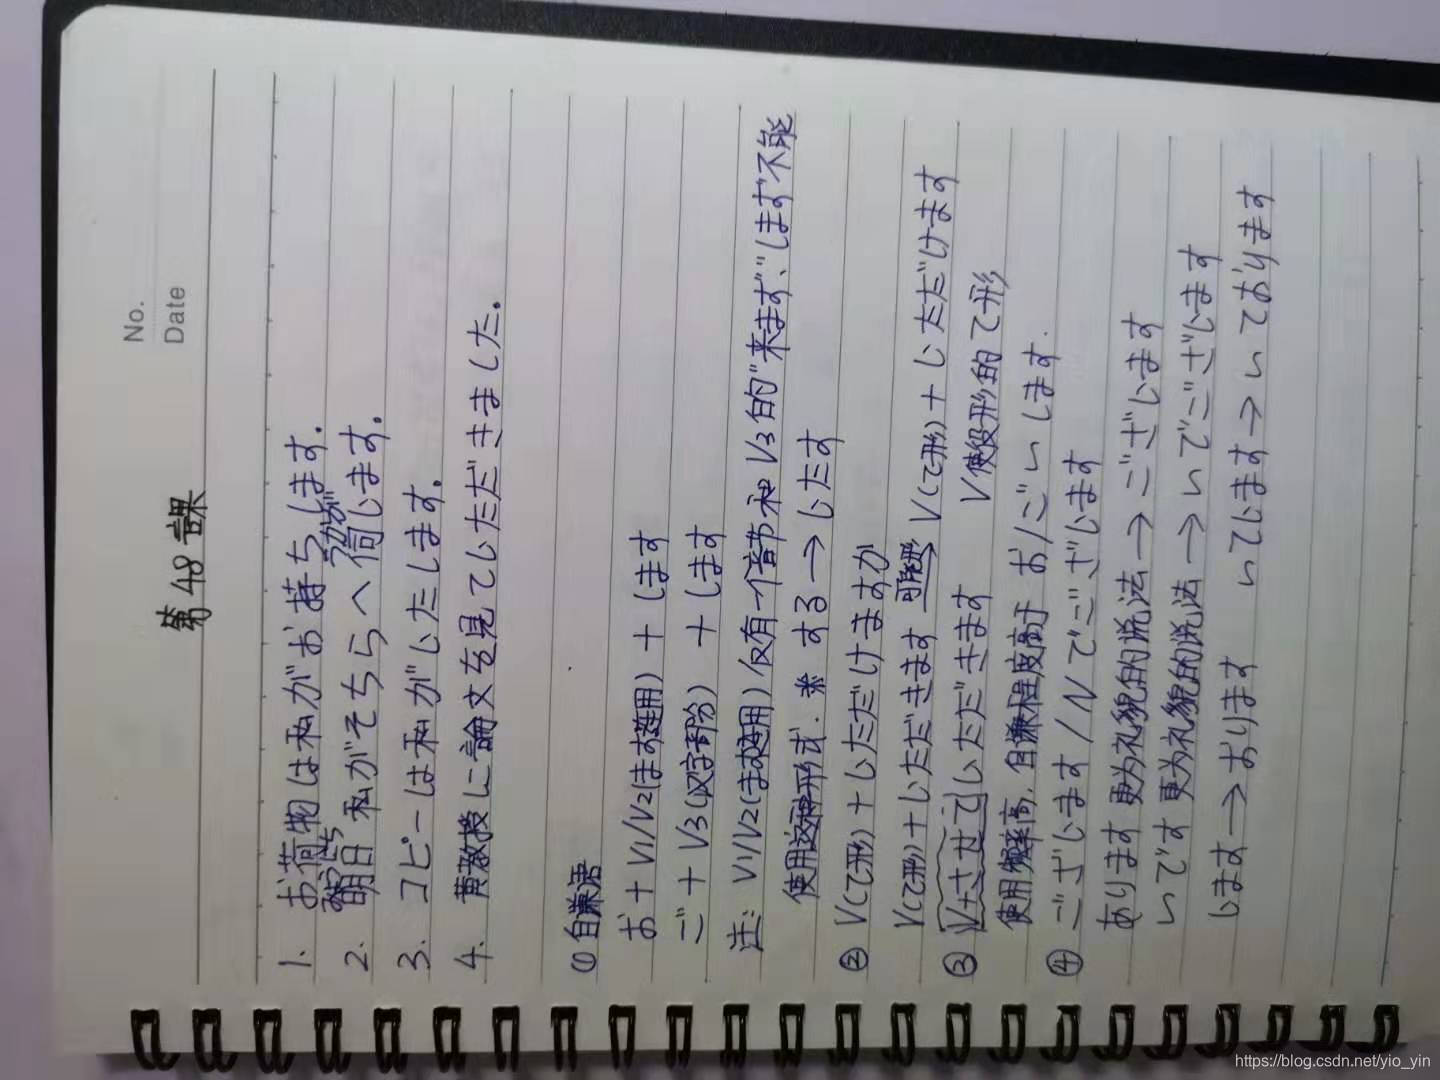 No.
Date
第48課
1. お荷物は私がお持ちします.
みょうにち うかが
2. 明日 私がそちらへ伺います。
3. コピーは私がいたします。
4. 黄教授に論文を見ていただきました。
① 自谦语
お + V1/V2(ます连用) + します
ご + V3(汉字部分) + します
注: V1/V2(ます连用)仅有一个音节和V3的"来ます"、"します"不能
使用这种形式. ※ する→いたす
② V(て形) + いただけますか
V(て形) + いただきます 可能形→ V(て形) + いただけます
③ V+させていただきます V使役形的て形
使用频率高, 自谦程度高于 お/ごいします.
④ ございます / Nでございます
あります 更为礼貌的说法 → ございます
いです 更为礼貌的说法 → いでございます
います→おります いています→いております
https://blog.csdn.net/yio_yin